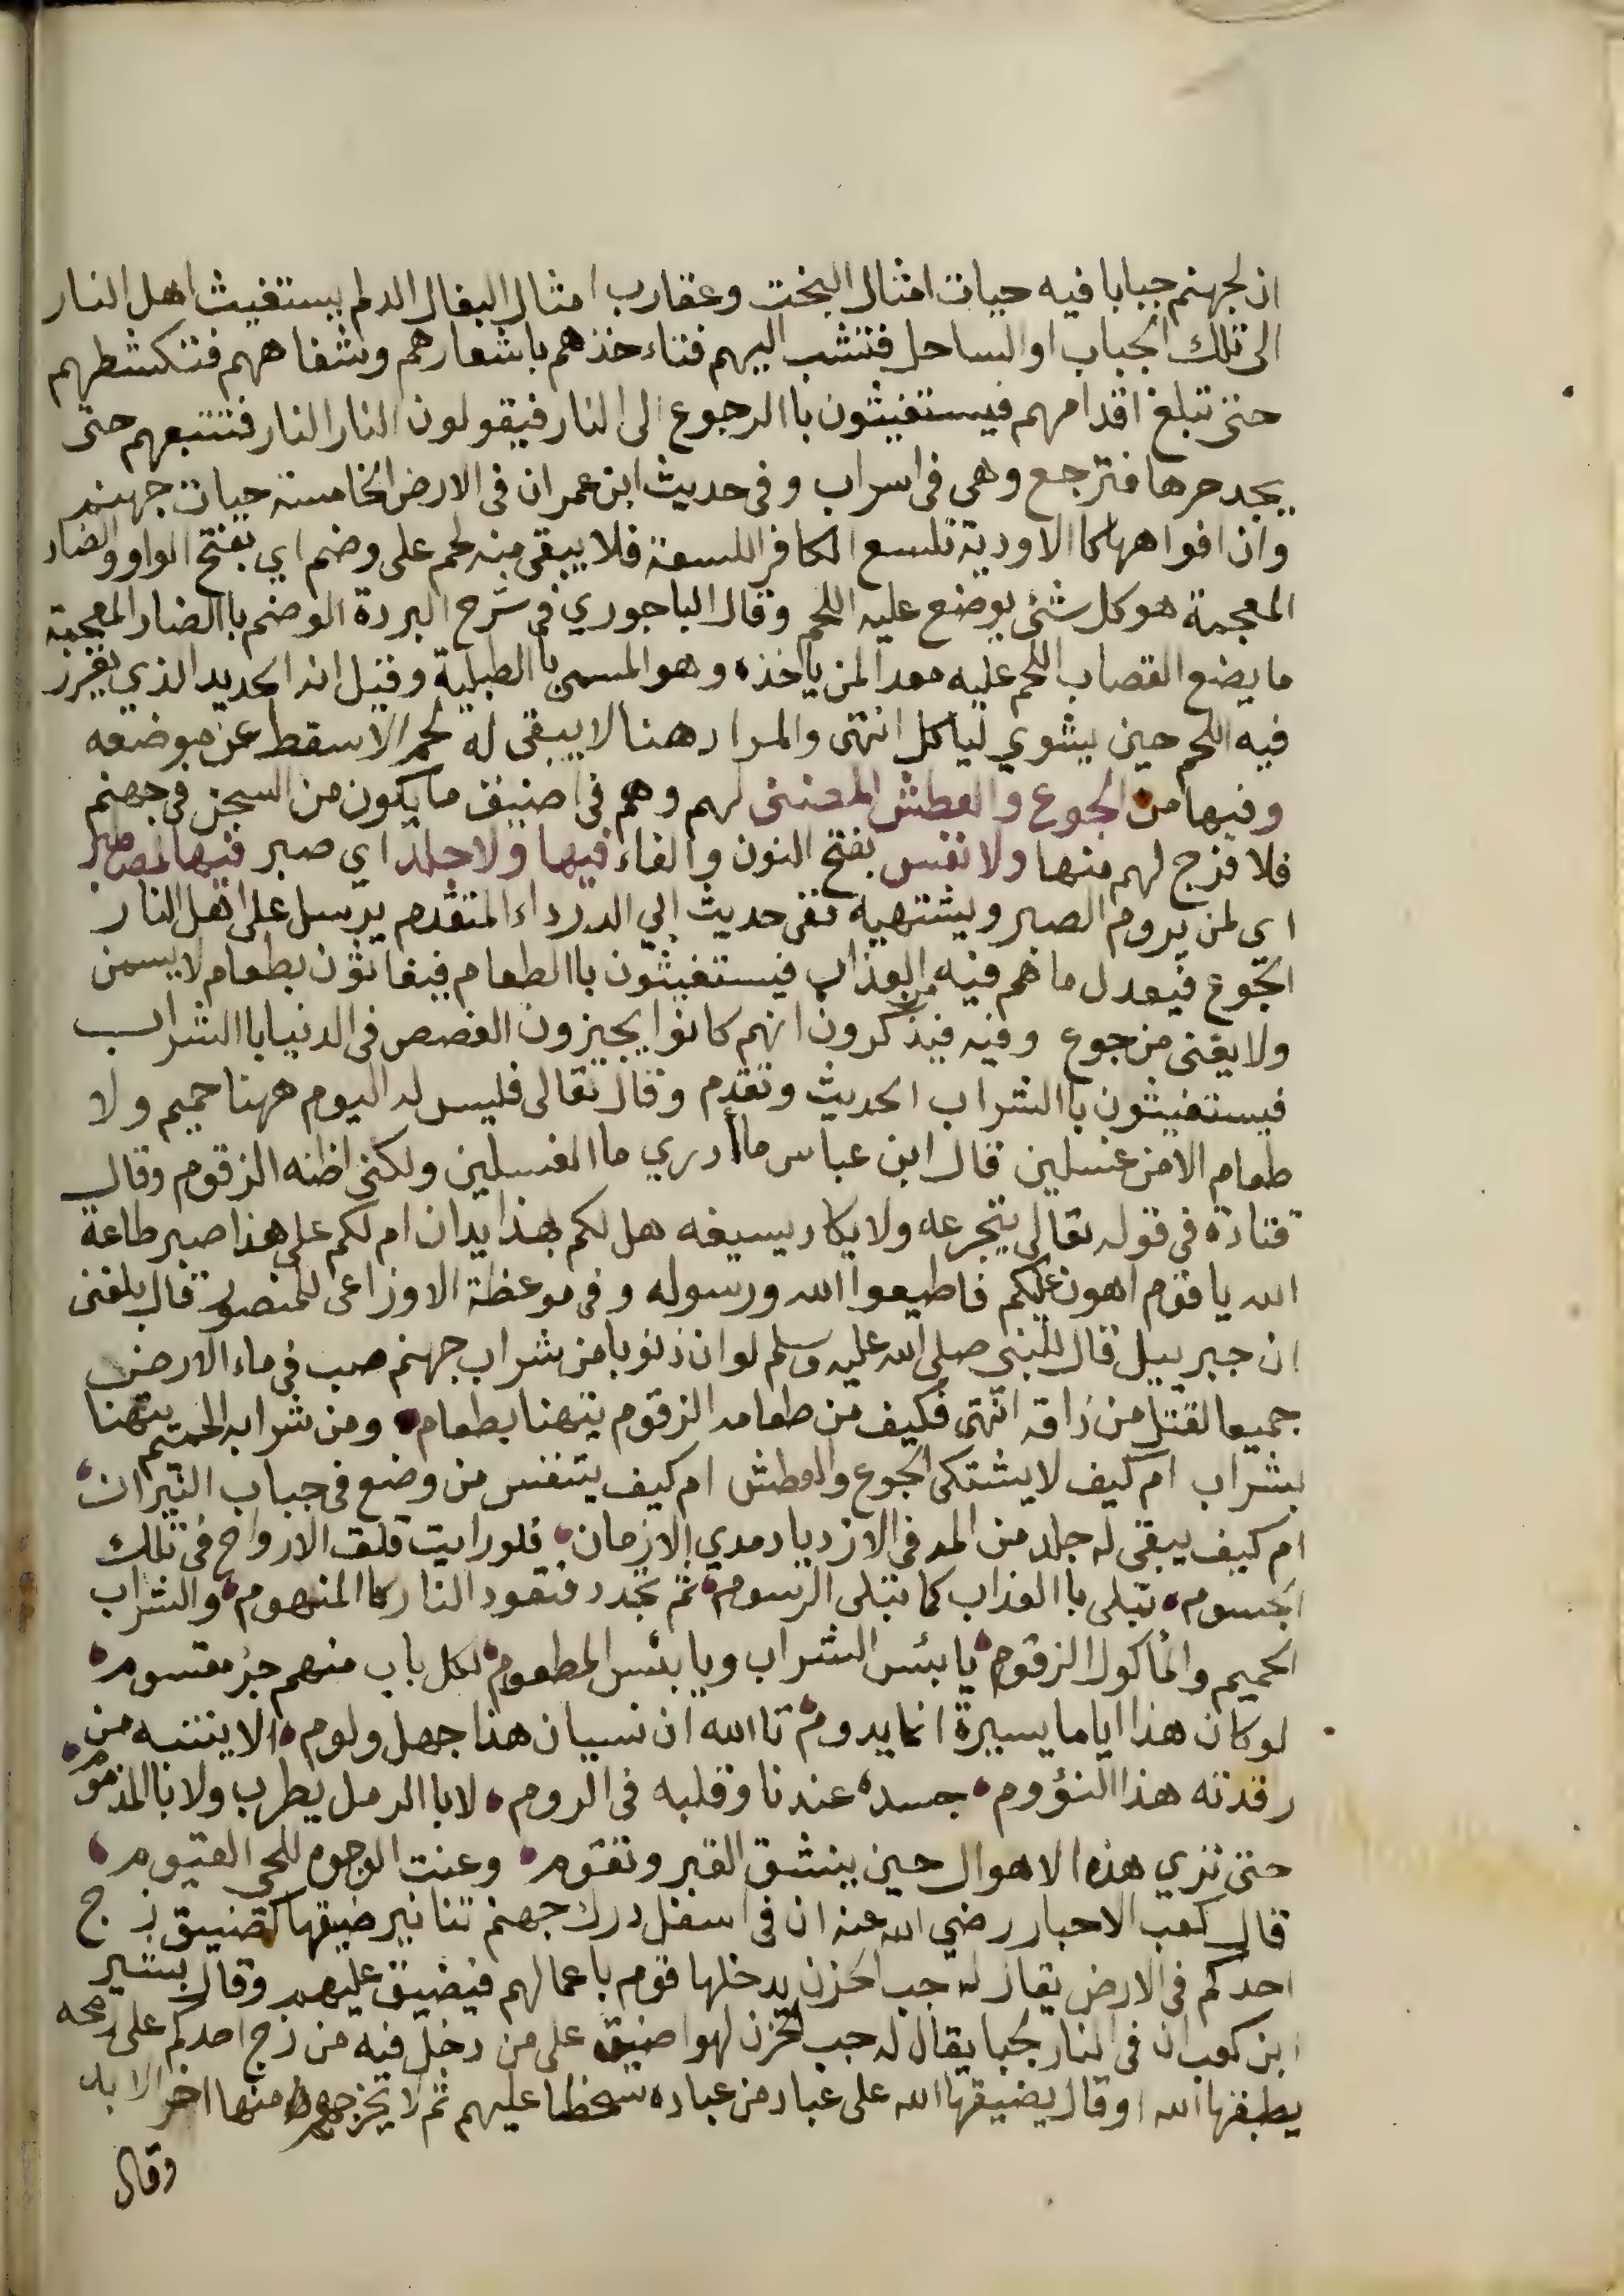 ان لجهنم جبابا فيه حيات امثال البخت وعقارب امثال البغال الدلم يستغيث اهل النار
الى تلك الجباب او الساحل فتنشب اليهم فتاءخذهم باشعارهم وشفاههم فتكشطهم
حتى تبلغ اقدامهم فيستغيثون باالرجوع الى النار فيقولون النار النار فتتبعهم حتى
يجد حرها فترجع وهي في اسراب وفي حديث ابن عمر ان في الارض الخامسة حيات جهنم
وان افواهها كاالاودية تلسع الكافر اللسعة فلا يبقى منه لحم على وضم اي بفتح الواو والضاد
المعجمة هو كل شئ يوضع عليه اللحم وقال الباجوري في شرح البردة الوضم باالضاد المعجمة
ما يضع القصاب اللحم عليه معدا لمن ياخذه وهو المسمى باالطبلية وقيل انه الحديد الذي يغرز
فيه اللحم حين يشوي لياكل انتهى والمراد هنا لا يبقى له لحم الا سقط عن موضعه
وفيها من الجوع والعطش المضني لهم وهم في اضيق ما يكون من السجن في جهنم
فلا فرج لهم منها ولا نفس بفتح النون والفاء فيها ولا جلد اي صبر فيها لمصطبر
اي لمن يروم الصبر ويشتهيه ففي حديث ابي الدرداء المتقدم يرسل على اهل النار
الجوع فيعدل ما هم فيه من العذاب فيستغيثون باالطعام فيغاثون بطعام لا يسمن
ولا يغنى من جوع وفيه فيذكرون انهم كانوا يجيزون الغصص في الدنيا باالشراب
فيستغيثون باالشراب الحديث وتقدم وقال تعالى فليس له اليوم ههنا حميم ولا
طعام الا من غسلين قال ابن عباس ما أدري ما الغسلين ولكني اظنه الزقوم وقال
قتادة في قوله تعالى يتجرعه ولا يكاد يسيغه هل لكم بهذا يدان ام لكم على هذا صبر طاعة
الله يا قوم اهون عليكم فاطيعوا الله ورسوله وفي موعظة الاوزاعى للمنصور قال بلغنى
ان جبرييل قال للنبي صلى الله عليه وسلم لو ان ذنوبا من شراب جهنم صب في ماء الارض
جميعا لقتل من ذاقه انتهى فكيف من طعامه الزقوم يتهنا بطعام ومن شرابه الحميم يتهنا
بشراب ام كيف لا يشتكى الجوع والعطش ام كيف يتنفس من وضع في جباب النيران
ام كيف يبقى له جلد من المه في الازدياد مدي الازمان فلو رايت قلق الارواح في تلك
الجسوم تبلى باالعذاب كما تبلى الرسوم ثم تجدد فتعود النار كاالمنهوم والشراب
الحميم والمأكول الزقوم يا بئس الشراب ويا بئس المطعوم لكل باب منهم جزء مقسوم
لو كان هذا اياما يسيرة انما يدوم تاالله ان نسيان هذا جهل ولوم الا ينتبه من
رقدته هذا النؤوم جسده عندنا وقلبه في الروم لا باالرمل يطرب ولا باالمذموم
حتى تري هذه الاهوال حين ينشق القبر وتقوم وعنت الوجوه للحي القيوم
قال كعب الاحبار رضي الله عنه ان في اسفل درك جهنم تنانير ضيقها كضيق زج
احدكم في الارض يقال له جب الحزن يدخلها قوم باعمالهم فيضيق عليهم وقال بشير
ابن كعب ان في النار لجبا يقال له جب الحزن لهو اضيق على من دخل فيه من زج احدكم على رمحه
يطبقها الله او قال يضيقها الله على عباد من عباده سخطا عليهم ثم لا يخرجهم منها اخر الابد
وقال